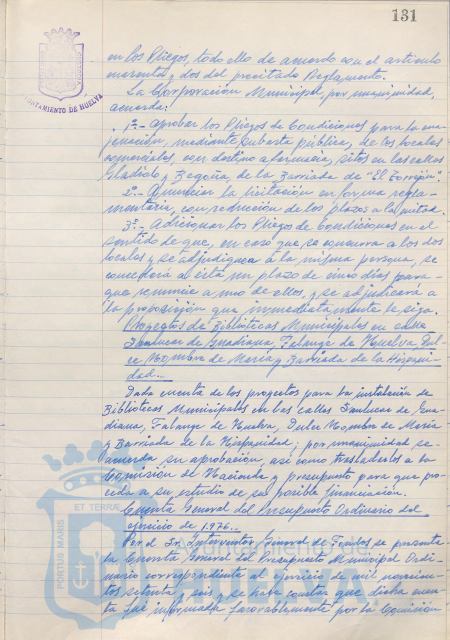 131
AYUNTAMIENTO DE HUELVA
en los Pliegos, todo ello de acuerdo con el artículo
noventa y dos del precitado Reglamento.
La Corporación Municipal, por unanimidad,
acuerda:
1º.- Aprobar los Pliegos de Condiciones para la ena-
jenación, mediante subasta pública, de los locales
comerciales, con destino a farmacia, sitos en las calles
Gladiolo y Begoña, de la Barriada de "El Torrejón".
2º.- Anunciar la licitación en forma regla-
mentaria, con reducción de los plazos a la mitad.
3º.- Adicionar los Pliegos de Condiciones en el
sentido de que, en caso que se concurra a los dos
locales y se adjudiquen a la misma persona, se
concederá a ésta un plazo de cinco días para
que renuncie a uno de ellos, y se adjudicará a
la proposición que inmediatamente le siga.
Proyectos de Bibliotecas Municipales en calle
Sanlucar de Guadiana, Falange de Huelva, Dul-
ce Nombre de María y Barriada de la Hispani-
dad.
Dada cuenta de los proyectos para la instalación de
Bibliotecas Municipales en las calles Sanlucar de Gua-
diana, Falange de Huelva, Dulce Nombre de María
y Barriada de la Hispanidad; por unanimidad se
acuerda su aprobación, así como trasladarlos a la
Comisión de Hacienda y presupuesto para que pro-
ceda a su estudio de su posible financiación.
Cuenta General del Presupuesto Ordinario del
ejercicio de 1.976.
Por el Sr. Interventor General de Fondos se presenta
la Cuenta General del Presupuesto Municipal Ordi-
nario correspondiente al ejercicio de mil novecientos
setenta y seis, y se hace constar que dicha cuen-
ta fue informada favorablemente por la Comisión
PORTUS MARIS
ET TERRAE
Ayuntamiento de